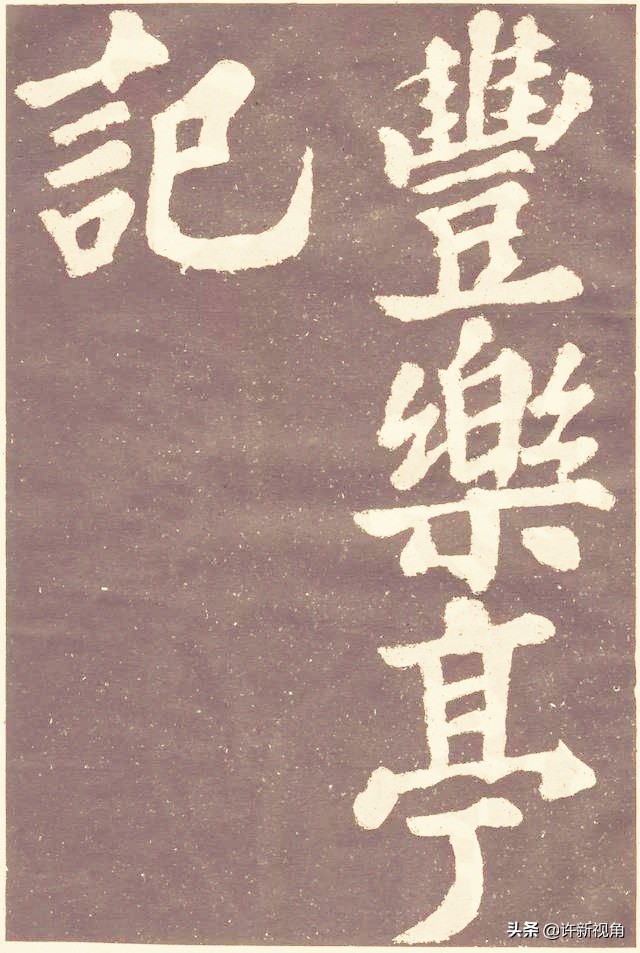 豐樂亭
記
头条 @许新视角